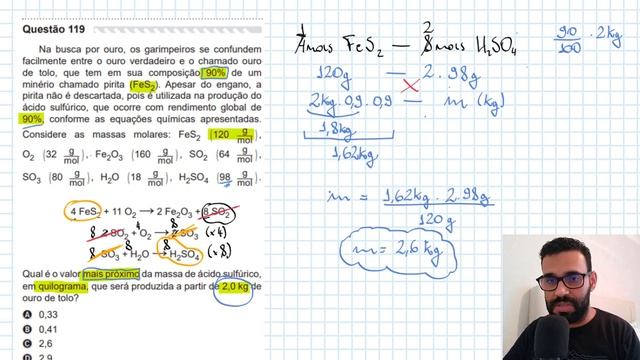 Questão 119
Na busca por ouro, os garimpeiros se confundem
facilmente entre o ouro verdadeiro e o chamado ouro
de tolo, que tem em sua composição 90% de um
minério chamado pirita (FeS₂). Apesar do engano, a
pirita não é descartada, pois é utilizada na produção do
ácido sulfúrico, que ocorre com rendimento global de
90%, conforme as equações químicas apresentadas.
Considere as massas molares: FeS₂ (120 g/mol),
O₂ (32 g/mol), Fe₂O₃ (160 g/mol), SO₂ (64 g/mol),
SO₃ (80 g/mol), H₂O (18 g/mol), H₂SO₄ (98 g/mol).
4 FeS₂ + 11 O₂ → 2 Fe₂O₃ + 8 SO₂
8 2 SO₂ + 4 O₂ → 8 2 SO₃ (x4)
8 SO₃ + 8 H₂O → 8 H₂SO₄ (x8)
Qual é o valor mais próximo da massa de ácido sulfúrico,
em quilograma, que será produzida a partir de 2,0 kg de
ouro de tolo?
A 0,33
B 0,41
C 2,6
D 2,9
1 2
4 mois FeS₂ — 8 mois H₂SO₄
90/100 . 2kg
120g — 2.98g
2kg.0,9.0,9 — m (kg)
1,8kg
1,62kg
m = 1,62kg . 2.98g
120g
m = 2,6 kg